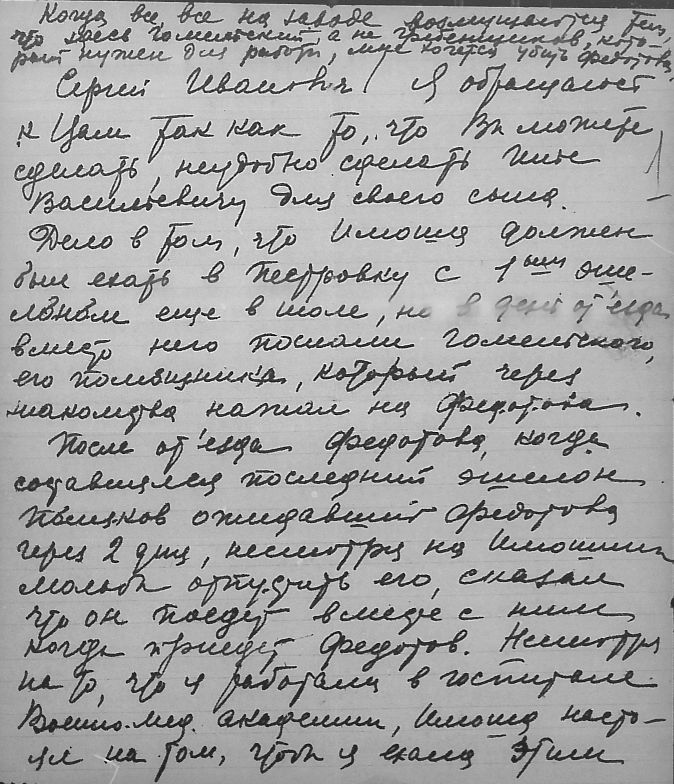 Когда все, все на заводе возмущаются тем,
что здесь Гомельский, а не Гребенщиков, кото-
рый нужен для работы, мне хочется убить Федотова.
Сергей Иванович! Я обращаюсь
к Вам так как то, что Вы можете
сделать, неудобно сделать
Васильевичу для своего сына.
Дело в том, что Имоша должен
был ехать в Петровку с 1ым эше-
лоном еще в июле, но в день от'езда
вместо него послали Гомельского,
его помощника, который через
знакомства нажал на Федотова.
После от'езда Федотова, когда
составлялся последний эшелон
ожидавший Федотова
через 2 дня, несмотря на Имошины
мольбы отпустить его, сказал
что он поедет вместе с ним
когда приедет Федотов. Несмотря
на то, что я работала в госпитале
Военно-мед. академии, Имоша насто-
ял на том, чтобы я ехала этим